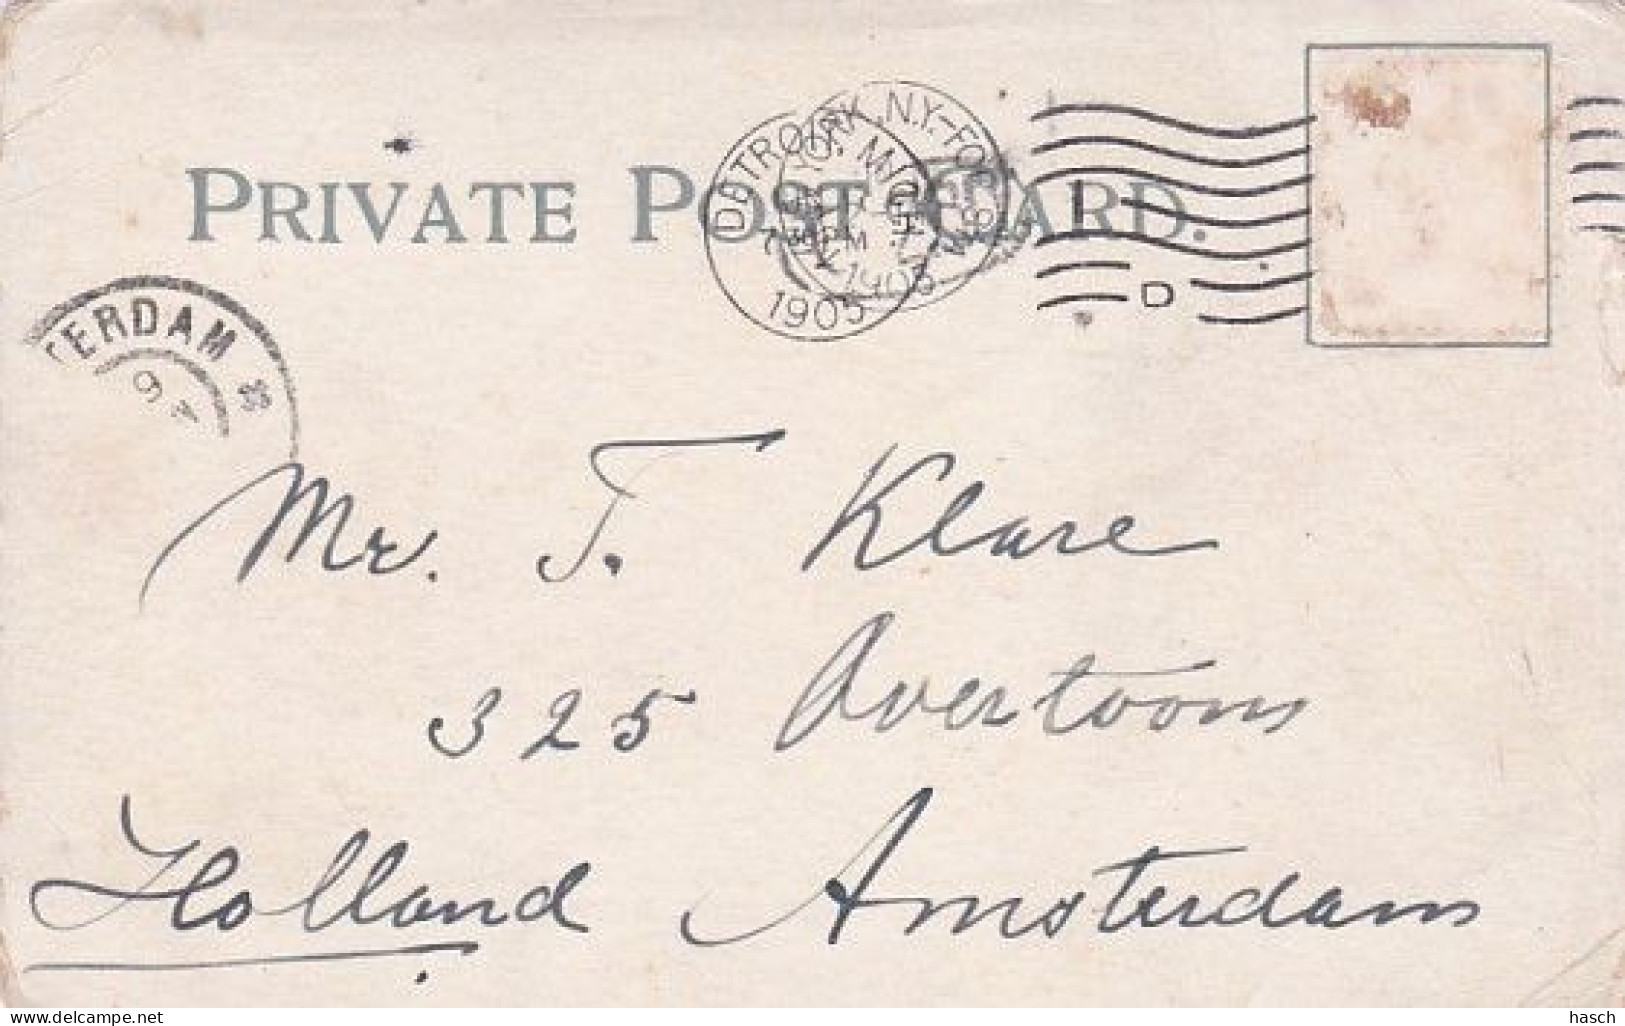 PRIVATE POST CARD.
DETROIT, MICH.
1905
N.Y.-FOR
1905
D
TERDAM
9
Mr. T. Klare
325 Overtoom
Holland Amsterdam
hasch